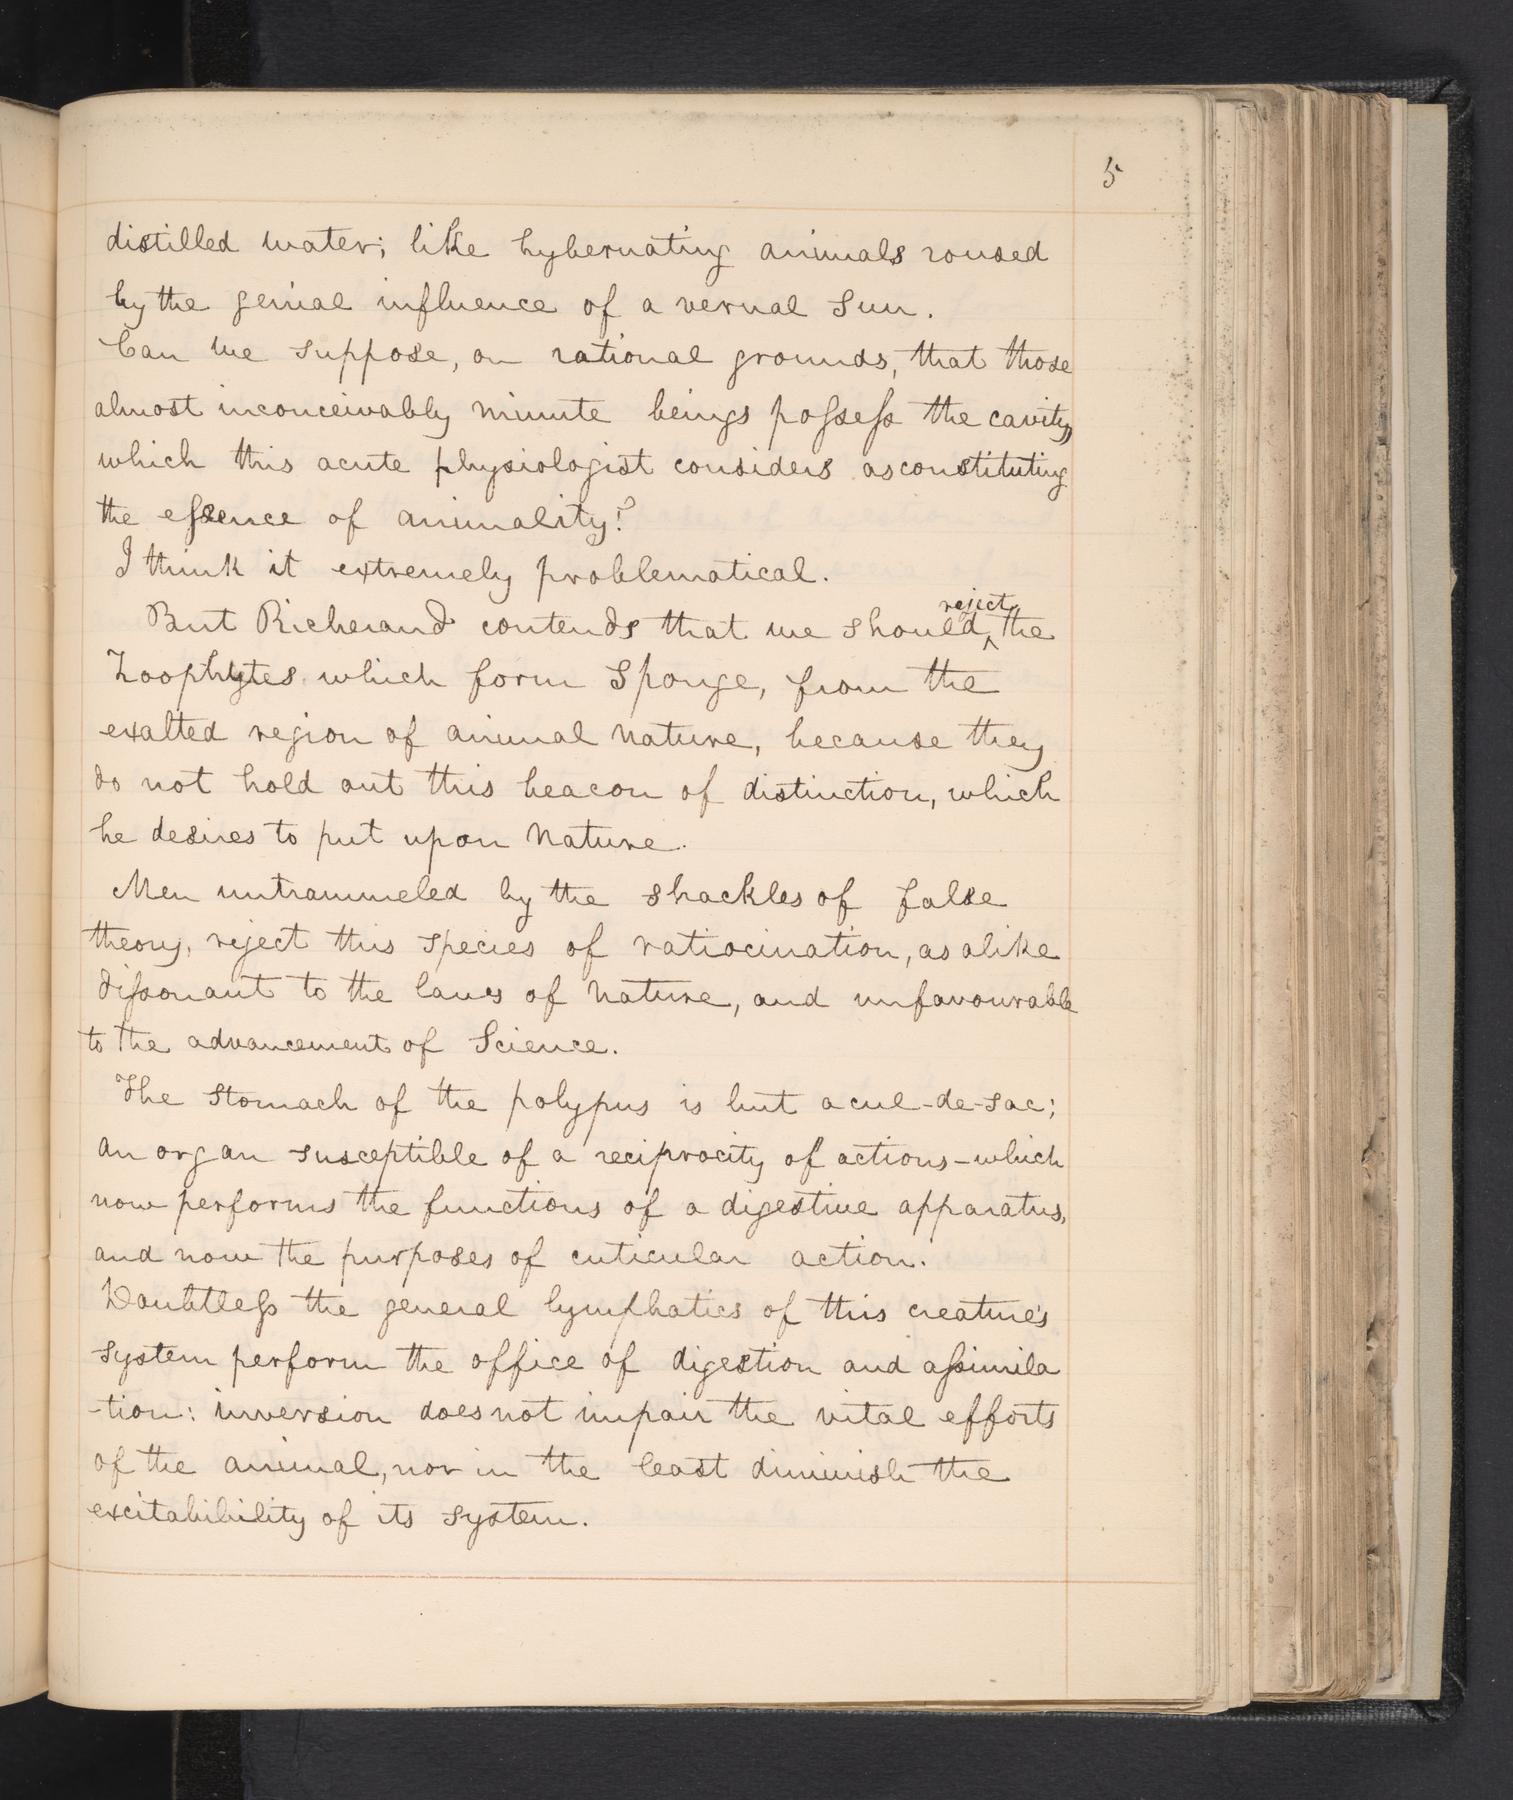 5
distilled water; like hybernating animals roused
by the genial influence of a vernal Sun.
Can we suppose, on rational grounds, that those
almost inconceivably minute beings possess the cavity,
which this acute physiologist considers as constituting
the essence of animality?
I think it extremely problematical.
But Richerand contends that we should reject the
Zoophytes which form Sponge, from the
exalted region of animal Nature, because they
do not hold out this beacon of distinction, which
he desires to put upon Nature.
Men untrammeled by the shackles of false
theory, reject this species of ratiocination, as alike
dissonant to the laws of Nature, and unfavourable
to the advancement of Science.
The stomach of the polypus is but a cul-de-sac;
an organ susceptible of a reciprocity of actions-which
now performs the functions of a digestive apparatus,
and now the purposes of cuticular action.
Doubtless the general lymphatics of this creature's
system perform the office of digestion and assimila
-tion: inversion does not impair the vital efforts
of the animal, nor in the least diminish the
excitability of its system.